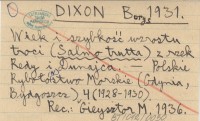 DIXON B. 1931.
Wiek i szybkość wzrostu
troci (Salmo trutta) z rzek
Redy i Dunajca. Polskie
Rybołówstwo Morskie (Gdynia,
Bydgoszcz) 4 (1928-1930)
Rec.: Gieysztor M. 1936.